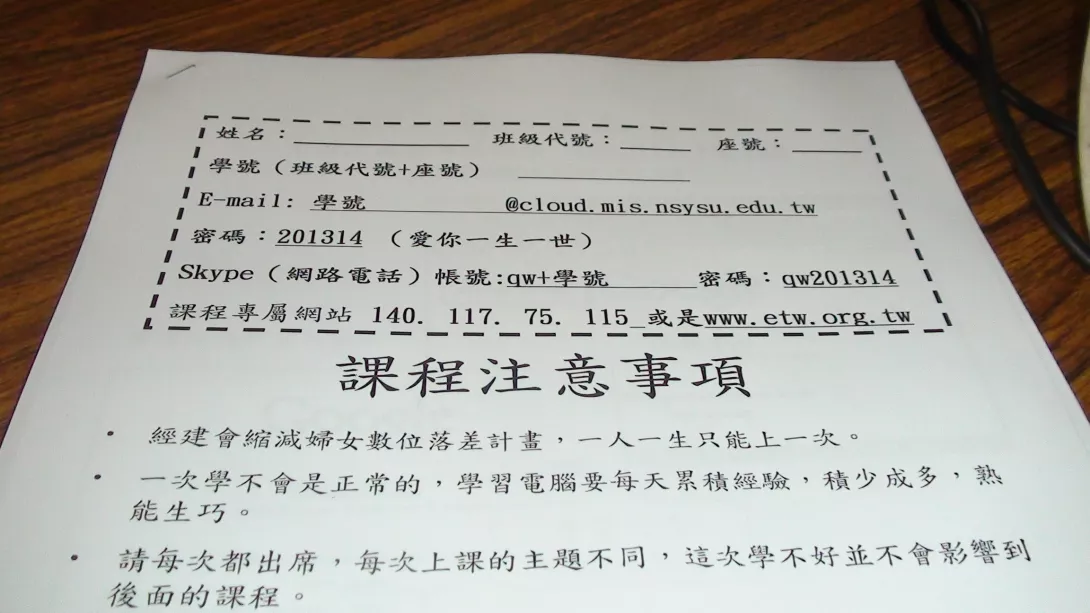 姓名：__________ 班級代號：_____ 座號：_____
學號（班級代號+座號） __________
E-mail: 學號 @cloud.mis.nsysu.edu.tw
密碼：201314 （愛你一生一世）
Skype（網路電話）帳號:qw+學號 密碼：qw201314
課程專屬網站 140. 117. 75. 115 或是www.etw.org.tw
課程注意事項
• 經建會縮減婦女數位落差計畫，一人一生只能上一次。
• 一次學不會是正常的，學習電腦要每天累積經驗，積少成多，熟
能生巧。
• 請每次都出席，每次上課的主題不同，這次學不好並不會影響到
後面的課程。